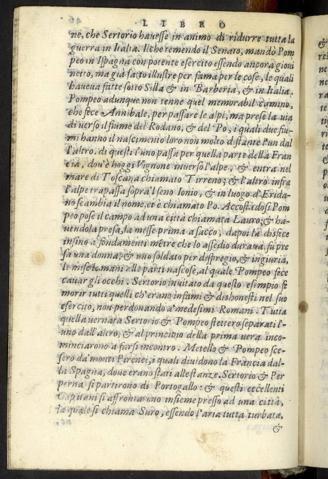 LIBRO
ne, che Sertorio hauesse in animo di ridurre tutta la
guerra in Italia. Il che temendo il Senato, mandò Pom
peo in Ispagna con potente esercito essendo ancora gioui
netto, ma già fatto illustre per fama per le cose, le quali
haueua fatte sotto Silla & in Barberia, & in Italia.
Pompeo adunque non tenne quel memorabil camino,
che fece Annibale, per passare le alpi, ma prese la via
di verso il fiume del Rodano, & del Po, i quali due fiu-
mi hanno il nascimento loro non molto distante l'un dal
l'altro. di questi l'uno passa per quella parte della Fran
cia, dou'è hoggi Vignone inuerso l'alpe, & entra nel
mare di Toscana chiamato Tirreno; & l'altro infra
l'alpe trapassa sopra'l seno Ionio, & in luogo d'Erida-
no scambia il nome, et è chiamato Po. Accostādosi Pom
peo pose il campo ad una città chiamata Lauro; & ha-
uendola presa, la messe prima a sacco, dapoi la disfece
insino a fondamenti mētre che lo assedio duraua. fu pre
sa una donna; & uno soldato per dispregio, & ingiuria,
le misse le mani alle parti nascose, al quale Pompeo fece
cauar gli occhi. Sertorio inuitato da questo esempio fe
morir tutti quelli, ch'erano infami & dishonesti nel suo
esercito, non perdonando a' medesimi Romani. Tutta
quella vernata Sertorio & Pompeo stettero separati l'
uno dall'altro, & al principio della prima uera inco-
minciarono a farsi incontro. Metello & Pompeo sce-
sero da' monti Pirenei, i quali diuidono la Francia dal-
la Spagna, doue erano stati alle stanze. Sertorio & Per
perna si partirono di Portogallo: & questi eccellenti
Capitani si affrontarono insieme presso ad una città,
la quale si chiama Suro, essendo l'aria tutta turbata,
&